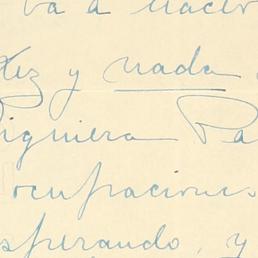 va a hacer
tez y nada
iguiera Pa
ocupaciones
sperando, y